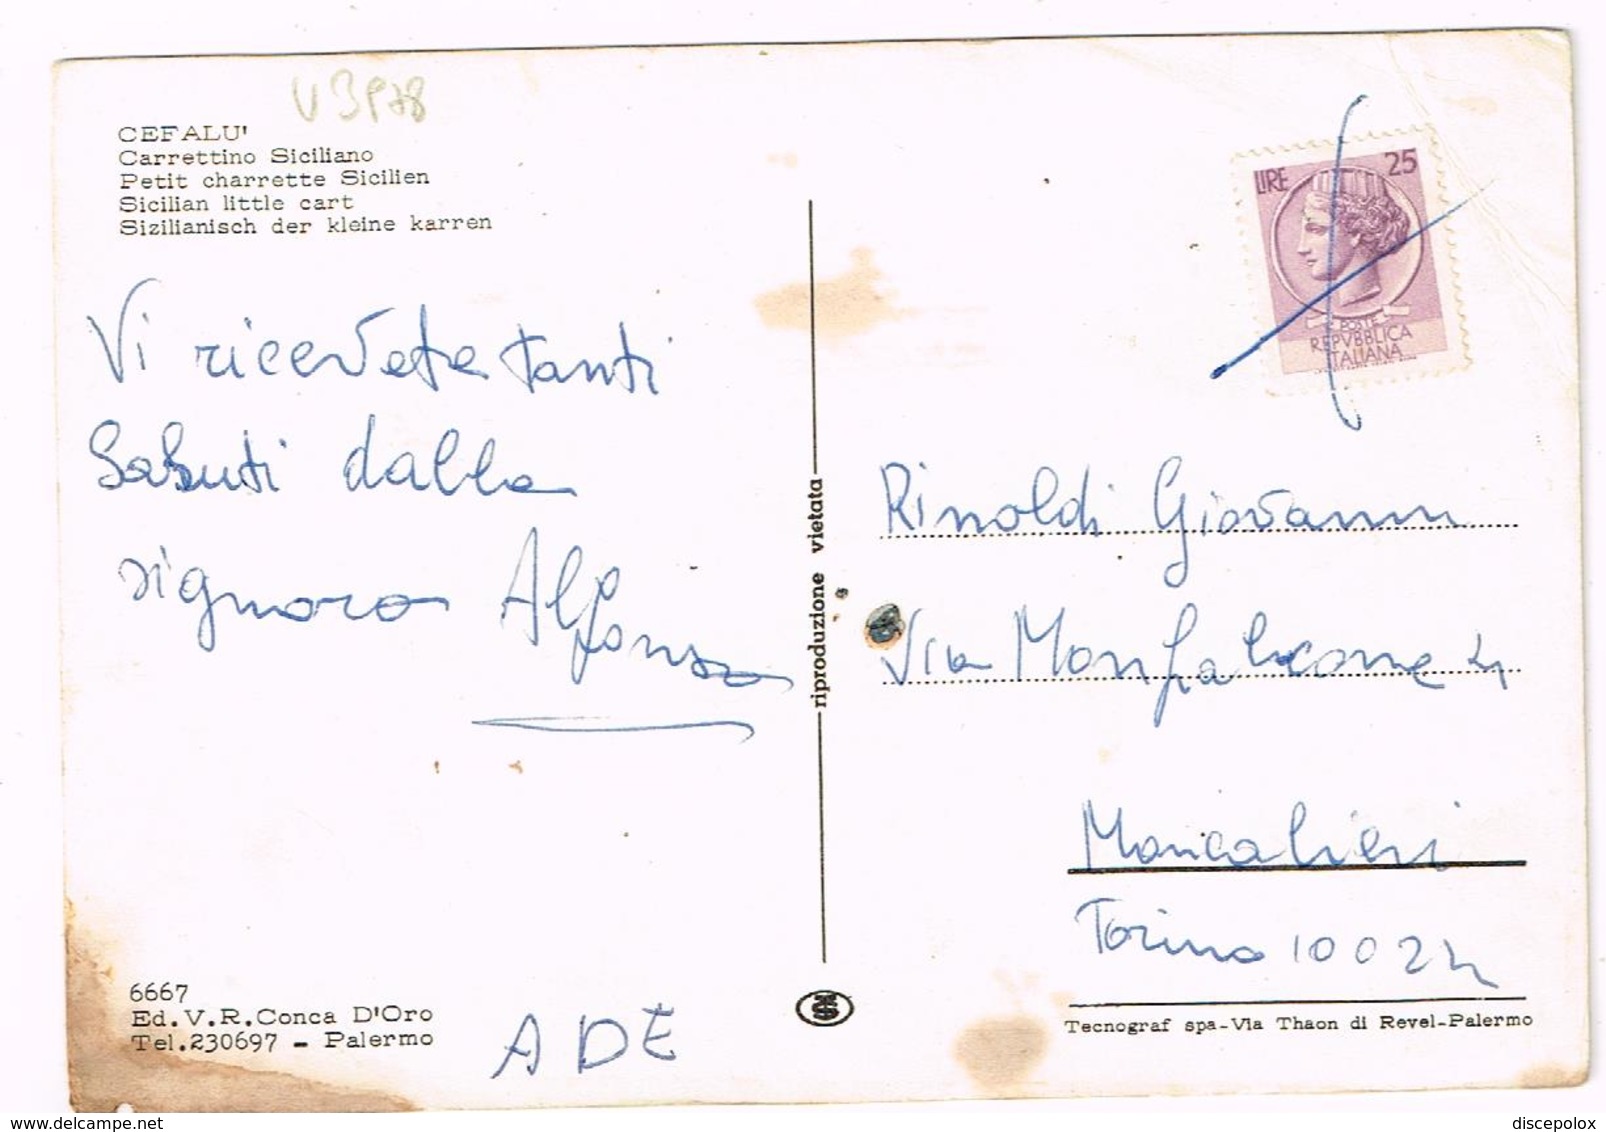 V3978
CEFALU'
Carrettino Siciliano
Petit charrette Sicilien
Sicilian little cart
Sizilianisch der kleine karren
Vi ricevete tanti
Saluti dalla
signora Alfonsa
6667
Ed.V.R.Conca D'Oro
Tel.230697 - Palermo
ADE
riproduzione vietata
LIRE 25
POSTE
REPVBBLICA
ITALIANA
Rinoldi Giovanni
Via Monfalcone 4
Moncalieri
Torino 10024
Tecnograf spa-Via Thaon di Revel-Palermo
discepolox
www.delcampe.net